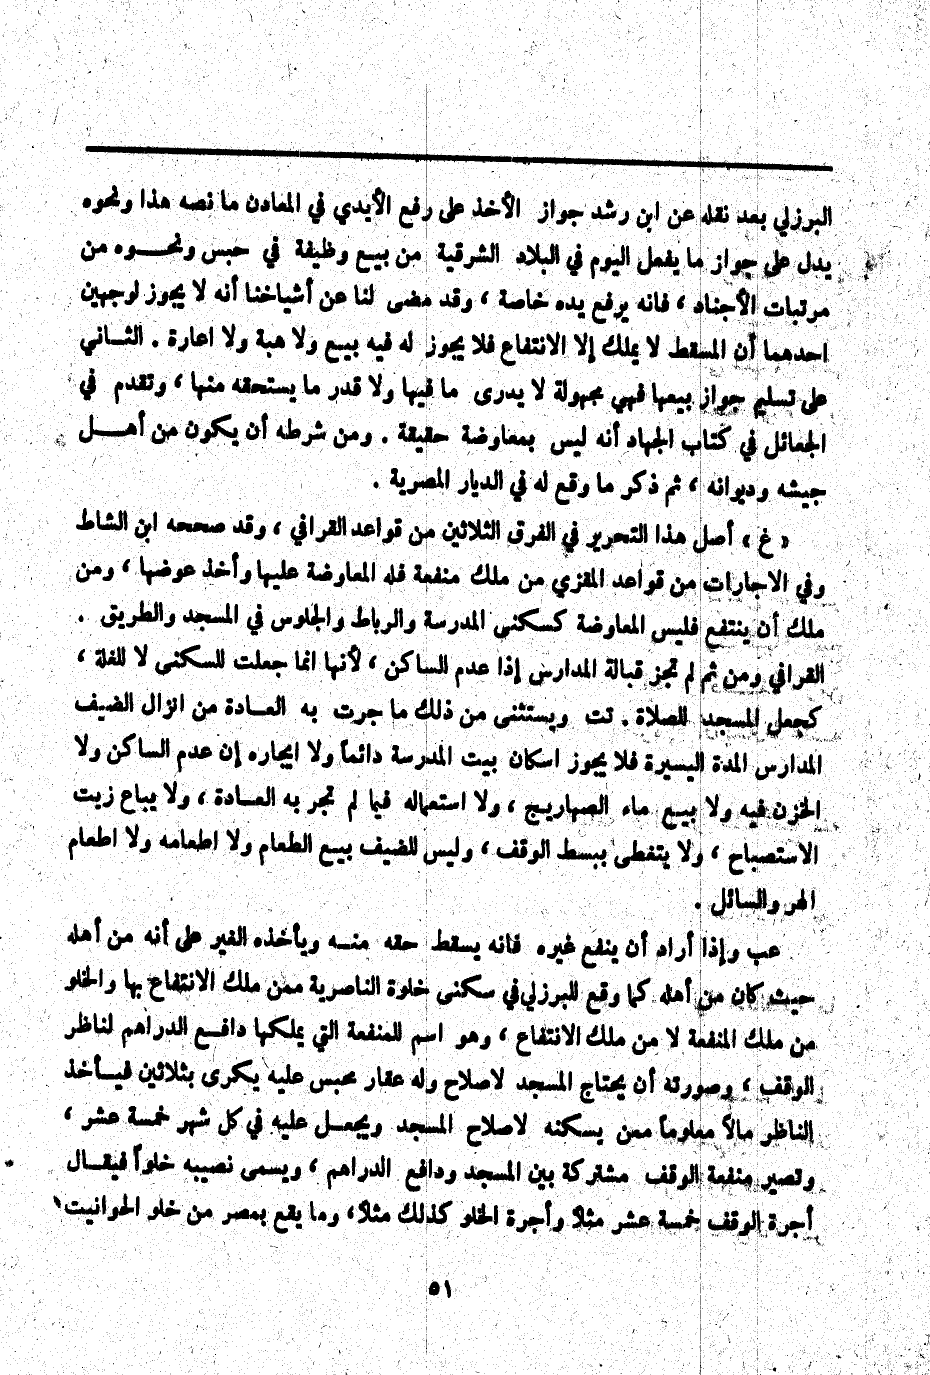 البرزلي بعد نقله عن ابن رشد جواز الأخذ على رفع الأيدي في المعادن ما نصه هذا ونحوه
يدل على جواز ما يفعل اليوم في البلاد الشرقية من بيع وظيفة في حبس ونحـــوه من
مرتبات الأجناد ، فانه يرفع يده خاصة ، وقد مضى لنا عن أشياخنا أنه لا يجوز لوجهين
احدهما أن المسقط لا يملك إلا الانتفاع فلا يجوز له فيه بيع ولا هبة ولا اعارة . الثـاني
على تسليم جواز بيعها فهي مجهولة لا يدرى ما فيها ولا قدر ما يستحقه منها ، وتقدم في
الجعائل في كتاب الجهاد أنه ليس بمعاوضة حقيقة . ومن شرطه أن يكون من أهـــل
جيشه وديوانه ، ثم ذكر ما وقع له في الديار المصرية .
« غ » أصل هذا التحرير في الفرق الثلاثين من قواعد القرافي ، وقد صححه ابن الشاط
وفي الاجارات من قواعد المقري من ملك منفعة فله المعاوضة عليها وأخذ عوضها ، ومن
ملك أن ينتفع فليس المعاوضة كسكنى المدرسة والرباط والجلوس في المسجد والطريق .
القرافي ومن ثم لم تجز قبالة المدارس إذا عدم الساكن ، لأنها انما جعلت للسكنى لا للغلة ،
كجعل المسجد للصلاة . تت ويستثنى من ذلك ما جرت به العـادة من انزال الضيف
المدارس المدة اليسيرة فلا يجوز اسكان بيت المدرسة دائماً ولا ايجاره إن عدم الساكن ولا
الخزن فيه ولا بيـع ماء الصهاريـج ، ولا استعماله فيما لم تجر به العـادة ، ولا يباع زيت
الاستصباح ، ولا يتغطى ببسط الوقف ، وليس للضيف بيع الطعام ولا اطعامه ولا اطعام
الهر والسائل .
عب وإذا أراد أن ينفع غيره فانه يسقط حقه منـه ويأخذه الغير على أنه من أهله
حيث كان من أهله كما وقع للبرزلي في سكنى خلوة الناصرية ممن ملك الانتفاع بها والخلو
من ملك المنفعة لا من ملك الانتفاع ، وهو اسم للمنفعة التي يملكها دافـع الدراهم لناظر
الوقف ، وصورته أن يحتاج المسجد لاصلاح وله عقار محبس عليه يكرى بثلاثين فيـأخذ
الناظر مالاً معلوماً ممن يسكنه لاصلاح المسجد ويجعـل عليه في كل شهر خمسة عشر ،
وتصير منفعة الوقف مشتركة بين المسجد ودافع الدراهم ، ويسمى نصيبه خلواً فيقـال
أجرة الوقف خمسة عشر مثلاً وأجرة الخلو كذلك مثلاً، وما يقع بمصر من خلو الحوانيت ،
٥١